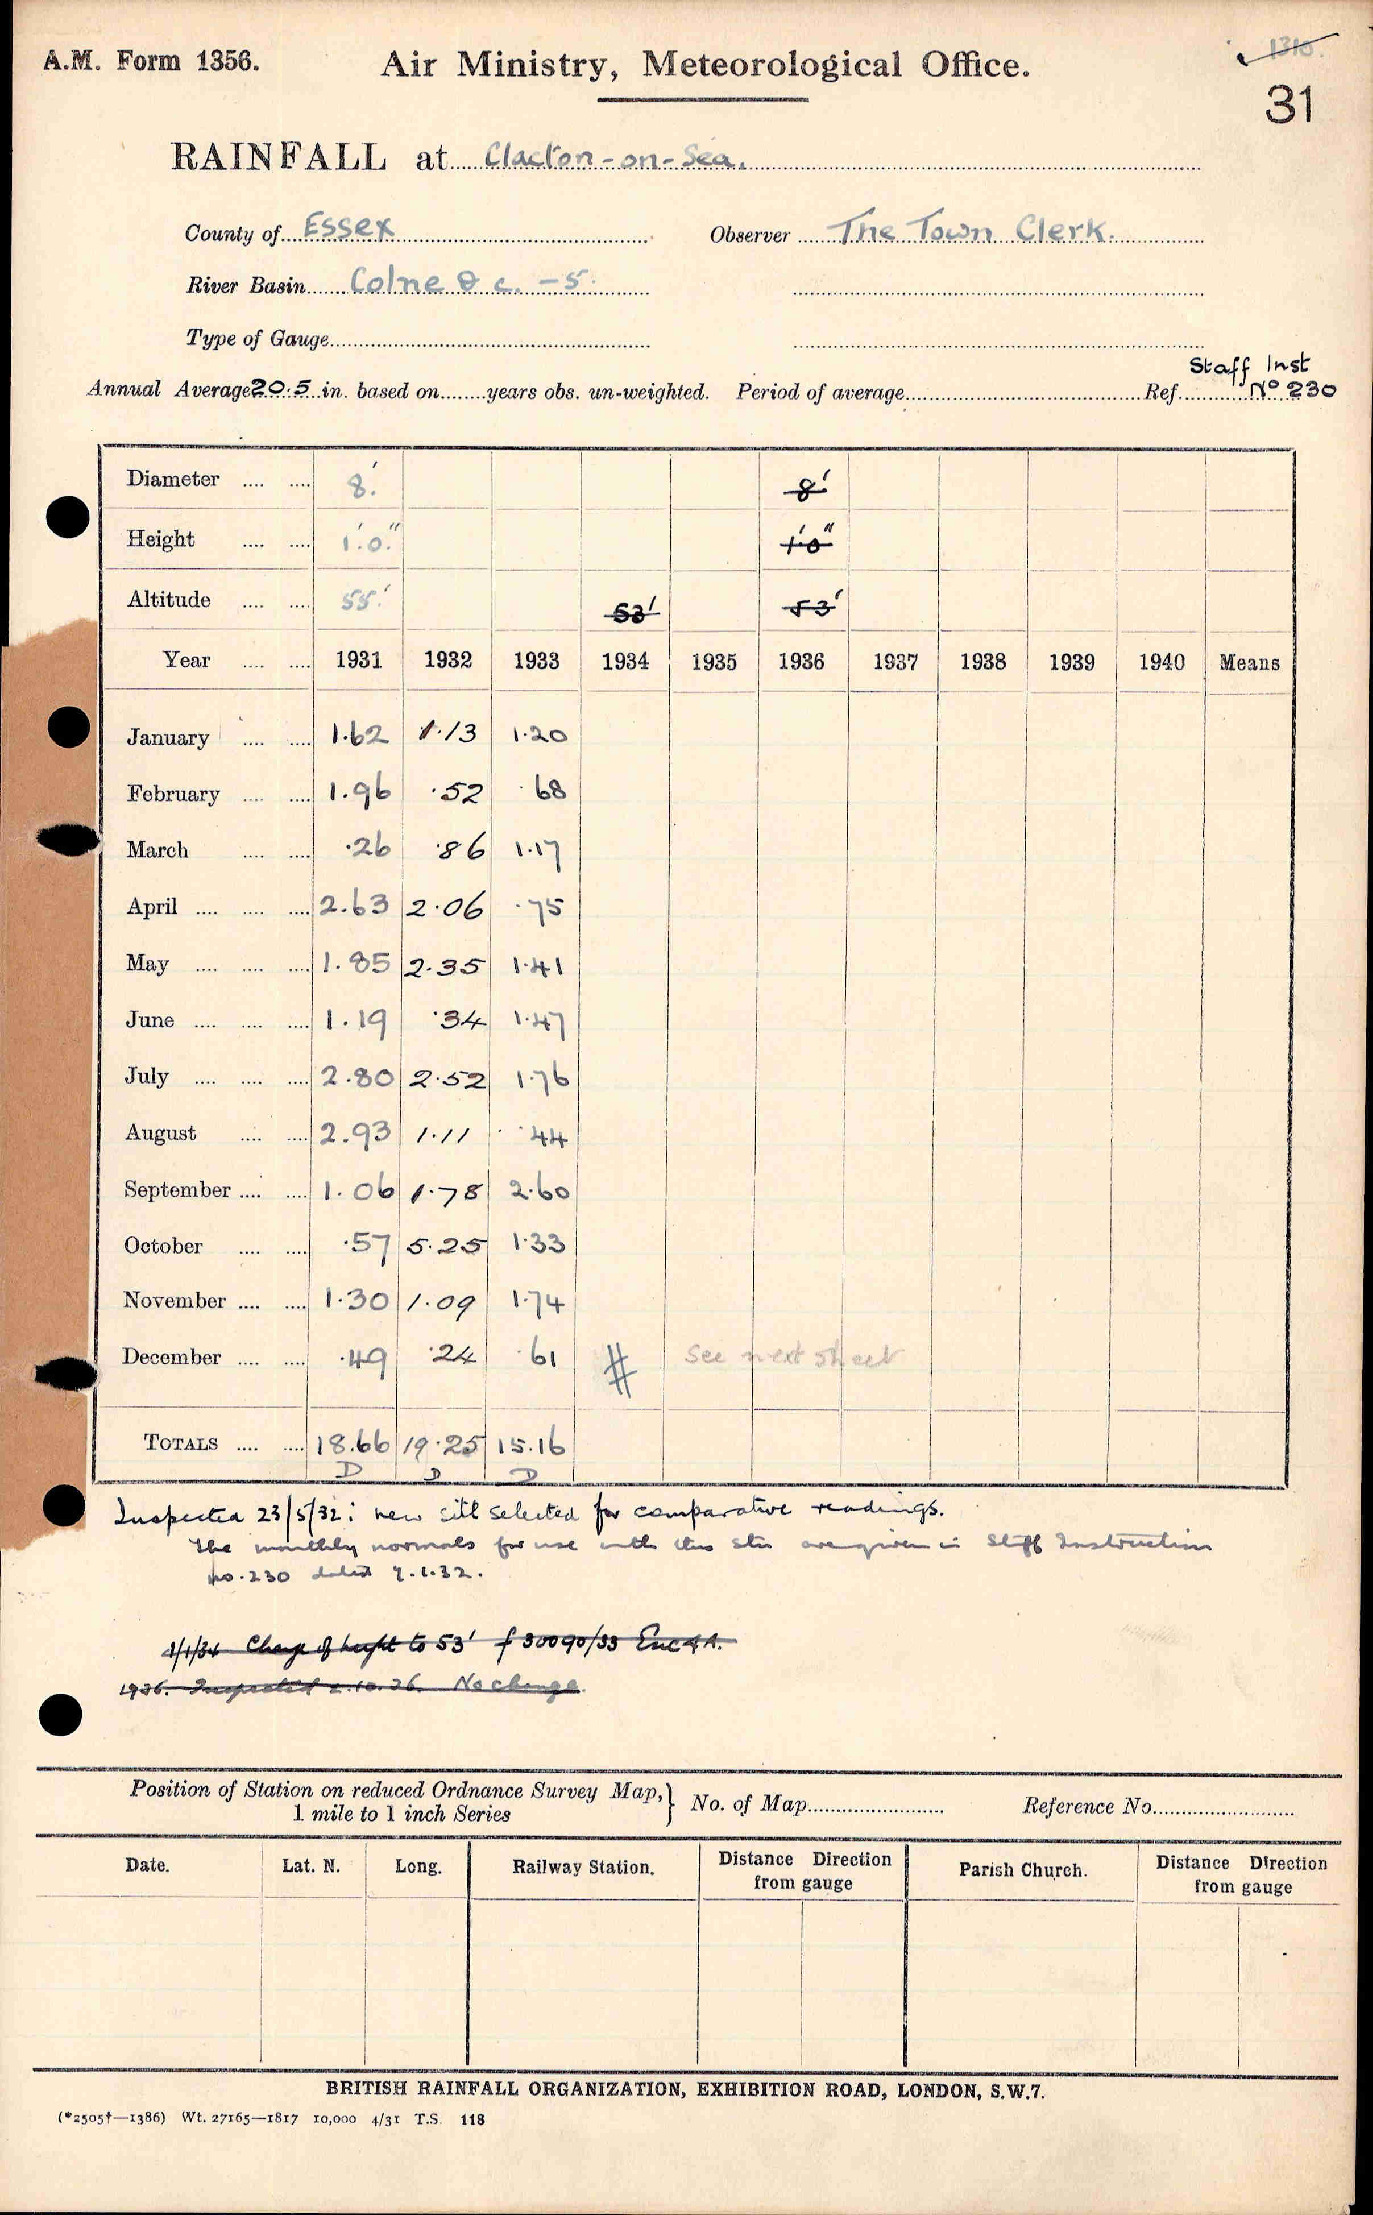 A.M. Form 1356. Air Ministry, Meteorological Office. 1310.
31
RAINFALL at Clacton-on-Sea.
County of Essex Observer The Town Clerk.
River Basin Colne & c. -5.
Type of Gauge
Staff Inst
Annual Average 20.5 in. based on years obs. un-weighted. Period of average Ref. No 230
Diameter 8' 8'
Height 1'0" 1'0"
Altitude 55' 53' 53'
Year 1931 1932 1933 1934 1935 1936 1937 1938 1939 1940 Means
January 1.62 1.13 1.20
February 1.96 .52 .68
March .26 .86 1.17
April 2.63 2.06 .75
May 1.85 2.35 1.41
June 1.19 .34 1.47
July 2.80 2.52 1.76
August 2.93 1.11 .44
September 1.06 1.78 2.60
October .57 5.25 1.33
November 1.30 1.09 1.74
December .49 .24 .61 # See next sheet
TOTALS 18.66 19.25 15.16
D D D
Inspected 23/5/32: new site selected for comparative readings.
The monthly normals for use with this stn are given in Staff Instruction
no. 230 dated 7.1.32.
1/1/34 Change of height to 53' f 30090/33 Enc 4A.
1936. Inspected 2.10.36. No change.
Position of Station on reduced Ordnance Survey Map, } No. of Map Reference No.
1 mile to 1 inch Series
Date. Lat. N. Long. Railway Station. Distance Direction from gauge Parish Church. Distance Direction from gauge
BRITISH RAINFALL ORGANIZATION, EXHIBITION ROAD, LONDON, S.W.7.
(*2505†—1386) Wt. 27165—1817 10,000 4/31 T.S. 118